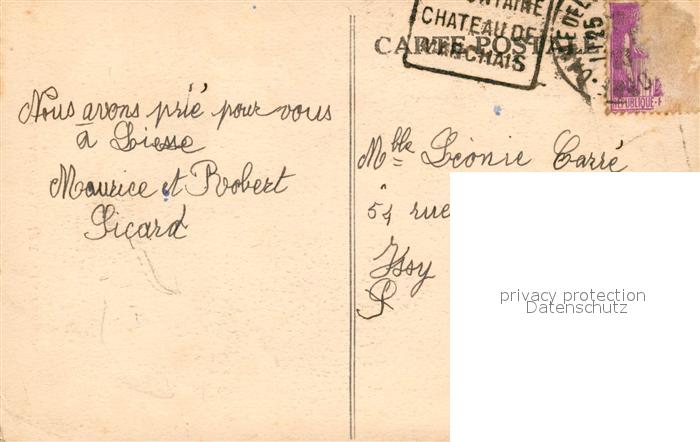 FONTAINE
CHATEAU DE
MARCHAIS
CARTE POSTALE
DAME DE L
25
REPUBLIQUE-F
Nous avons prié pour vous
à Liesse
Maurice et Robert
Sicard
Mlle Léonie Carré
54 rue
Issy
privacy protection
Datenschutz